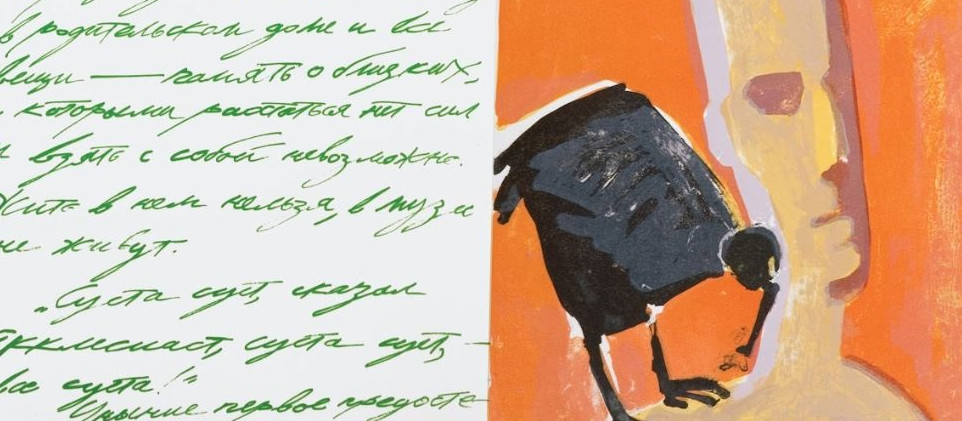 в родительском доме и все
вещи — память о близких,
с которыми расстаться нет сил
и взять с собой невозможно.
Жить в нем нельзя, в музее
не живут.
„Суета сует, сказал
Екклесиаст, суета сует, —
все суета!"
Уныние первое предосте